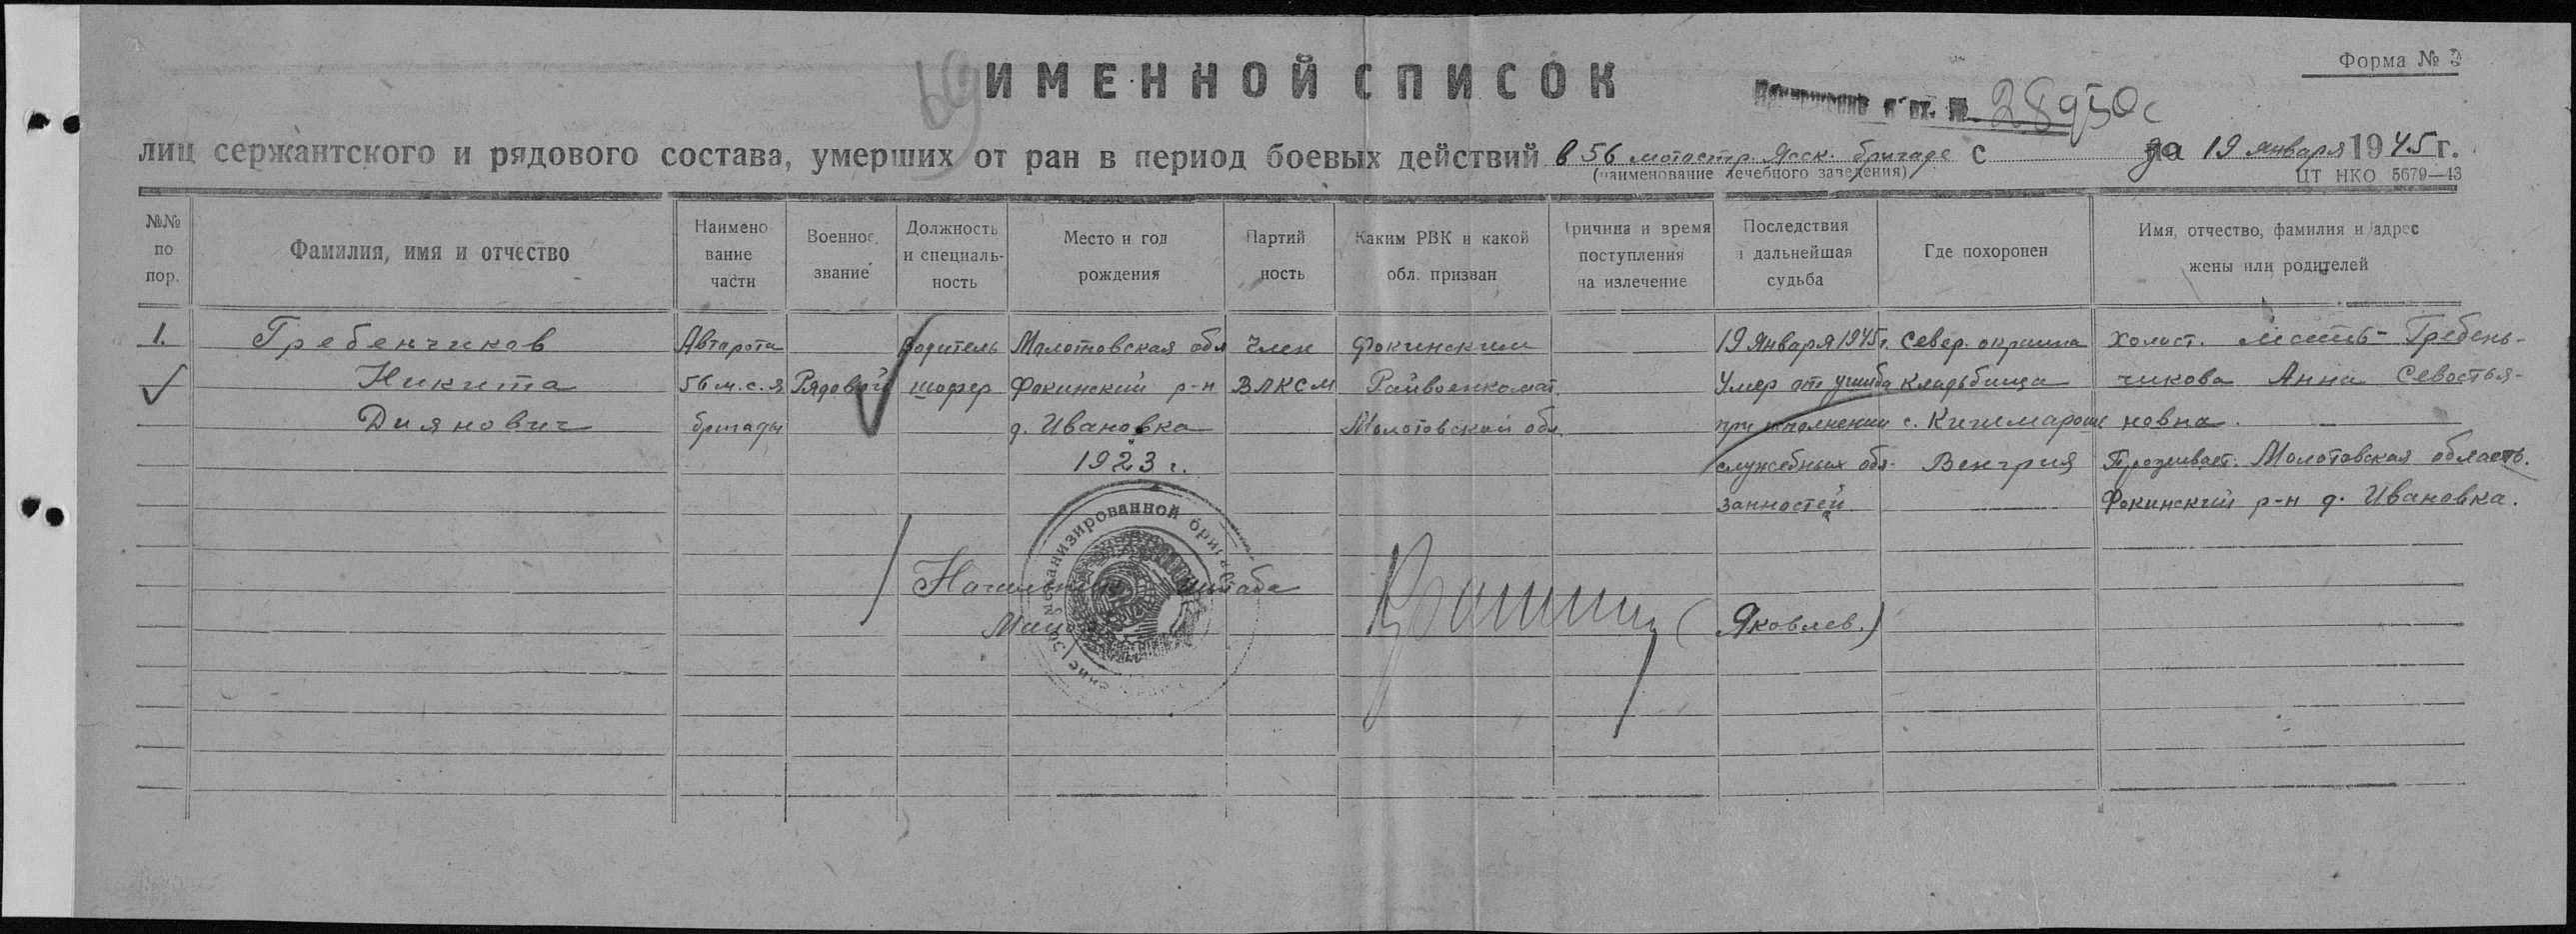 Форма № 2
69 ИМЕННОЙ СПИСОК
вх. № 28950с
лиц сержантского и рядового состава, умерших от ран в период боевых действий в 56 мотостр. Ясск. бригаде с за 19 января 1945 г.
(наименование лечебного заведения)
ЦТ НКО 5679—43
№№ по пор.
Фамилия, имя и отчество
Наимено вание части
Военное звание
Должность и специаль- ность
Место и год рождения
Партий ность
Каким РВК и какой обл. призван
Причина и время поступления на излечение
Последствия и дальнейшая судьба
Где похоронен
Имя, отчество, фамилия и адрес жены или родителей
1. Гребенчиков Авторота водитель Молотовская обл член Фокинским 19 Января 1945г. север. окраина Холост. Мать- Гребень-
Никита 56 м.с.я Рядовой шофер Фокинский р-н ВЛКСМ Райвоенкомат Умер от ушиба кладбища чикова Анна Севостья-
Диянович бригады д. Ивановка Молотовской обл. при исполнении с. Кичимароше новна.
1923 г. служебных обя- Венгрия Проживает. Молотовская область.
занностей Фокинский р-н д. Ивановка.
механизированной бриг
Начальник штаба
(Яковлев.)